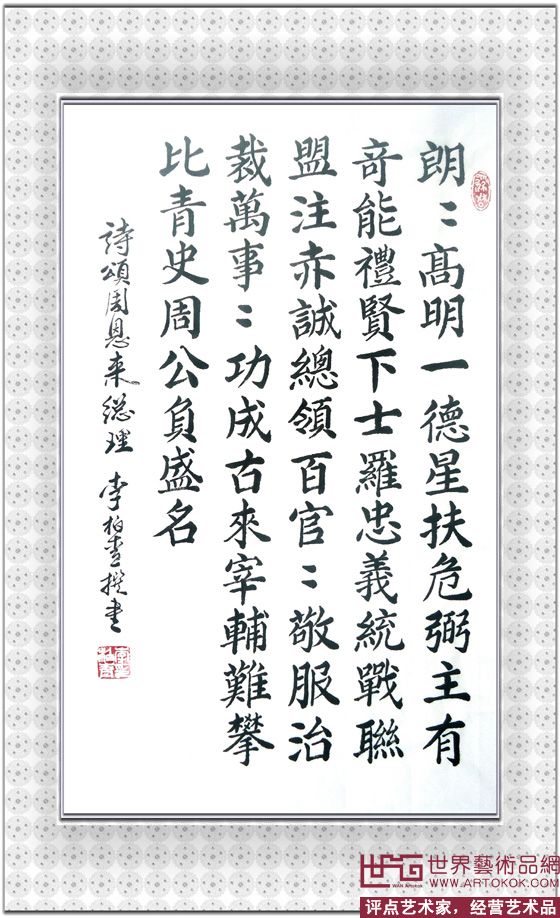 朗〻高明一德星扶危弼主有
奇能禮賢下士羅忠義統戰聯
盟注赤誠總領百官〻敬服治
裁萬事〻功成古來宰輔難攀
比青史周公負盛名
詩頌周恩来總理 李柏青撰書
世界藝術品網
WAN Artokok
WWW.ARTOKOK.COM
评点艺术家，经营艺术品